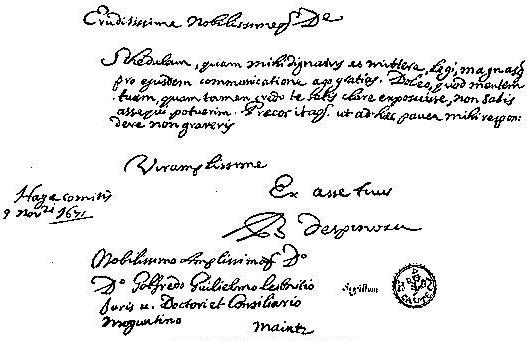 Eruditissime Nobilissimeq; De
Schedulam, quam mihi dignatus es mittere, legi, magnasq;
pro ejusdem communicatione ago gratias. Doleo, quod mentem
tuam, quam tamen credo te satis clare exposuisse, non satis
assequi potuerim. Precor itaq; ut ad hæc pauca mihi respon:
dere non graveris
Viramplissime
Ex asse tuus
B despinosa
Hagæ comitis
9 Novris 1671
Nobilissimo Amplissimoq; Do
Do Gotfredo Guilielmo Leibnitio
Juris u. Doctori et Consiliario
Moguntino
Maintz
Sigillum